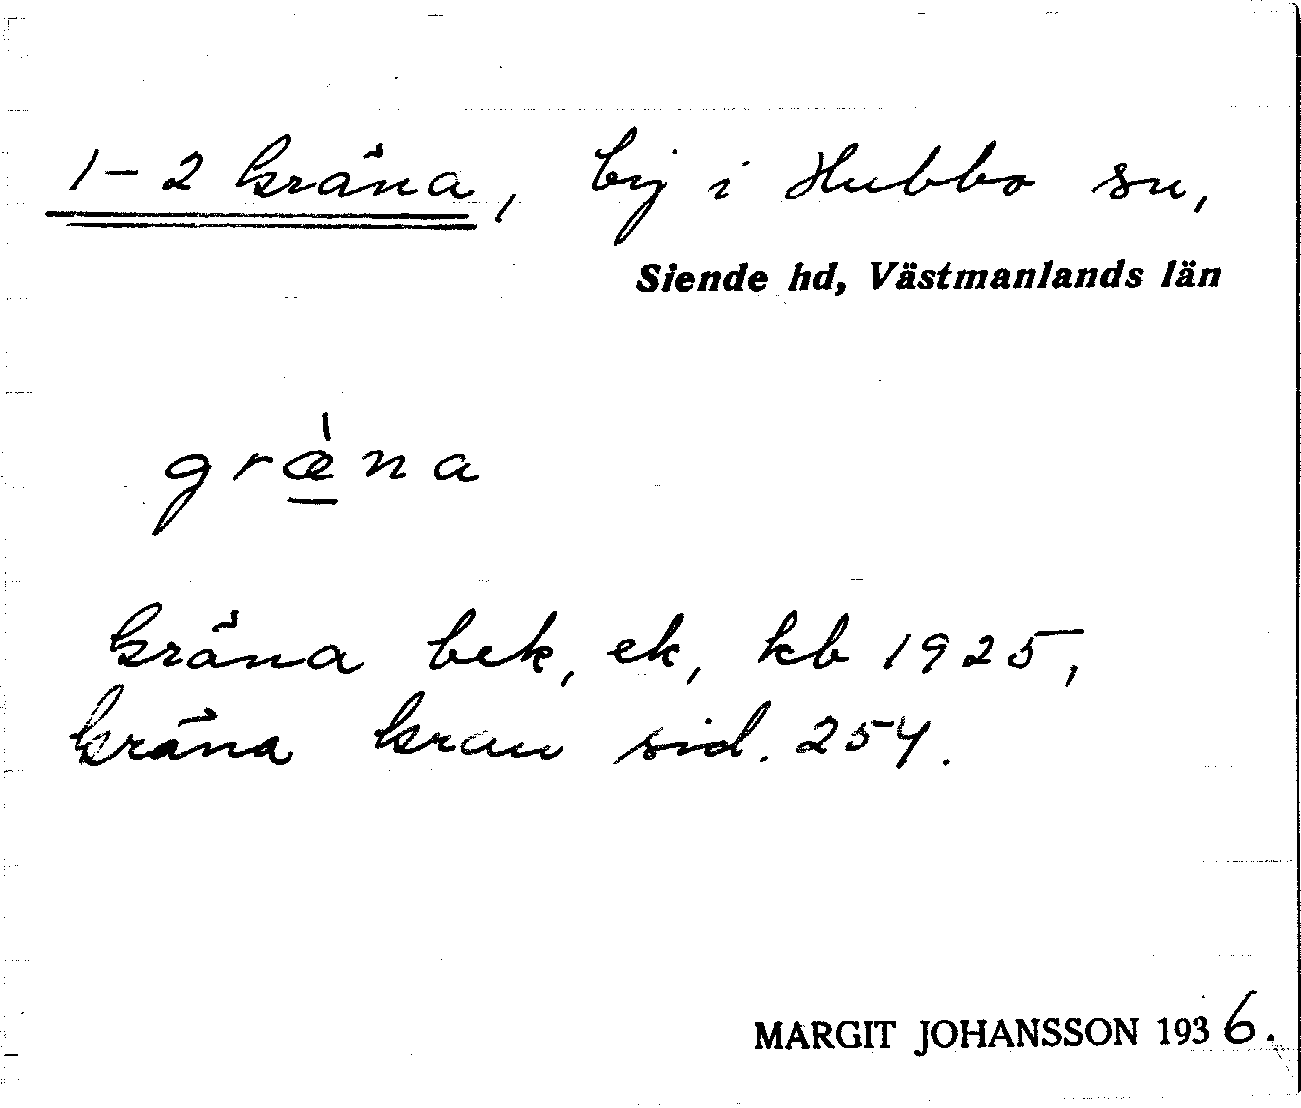 1-2 Kräna, by i Hubbo sn,
Siende hd, Västmanlands län
græ̱̀na
Kräna bek, ek, kb 1925,
Kräna kran sid. 254.
MARGIT JOHANSSON 1936.